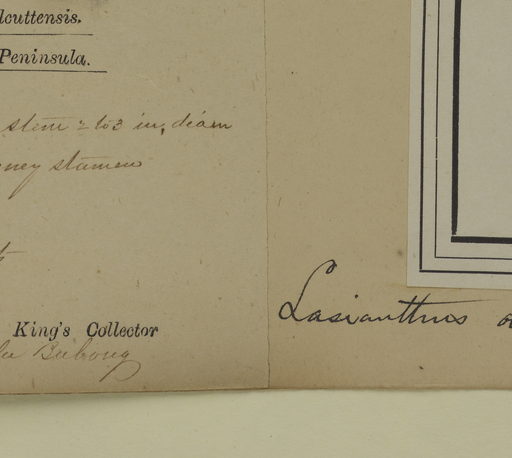 lcuttensis.
Peninsula.
stem 2 to 3 in, diam
ney stamen
King's Collector
Bubong
Lasianthus